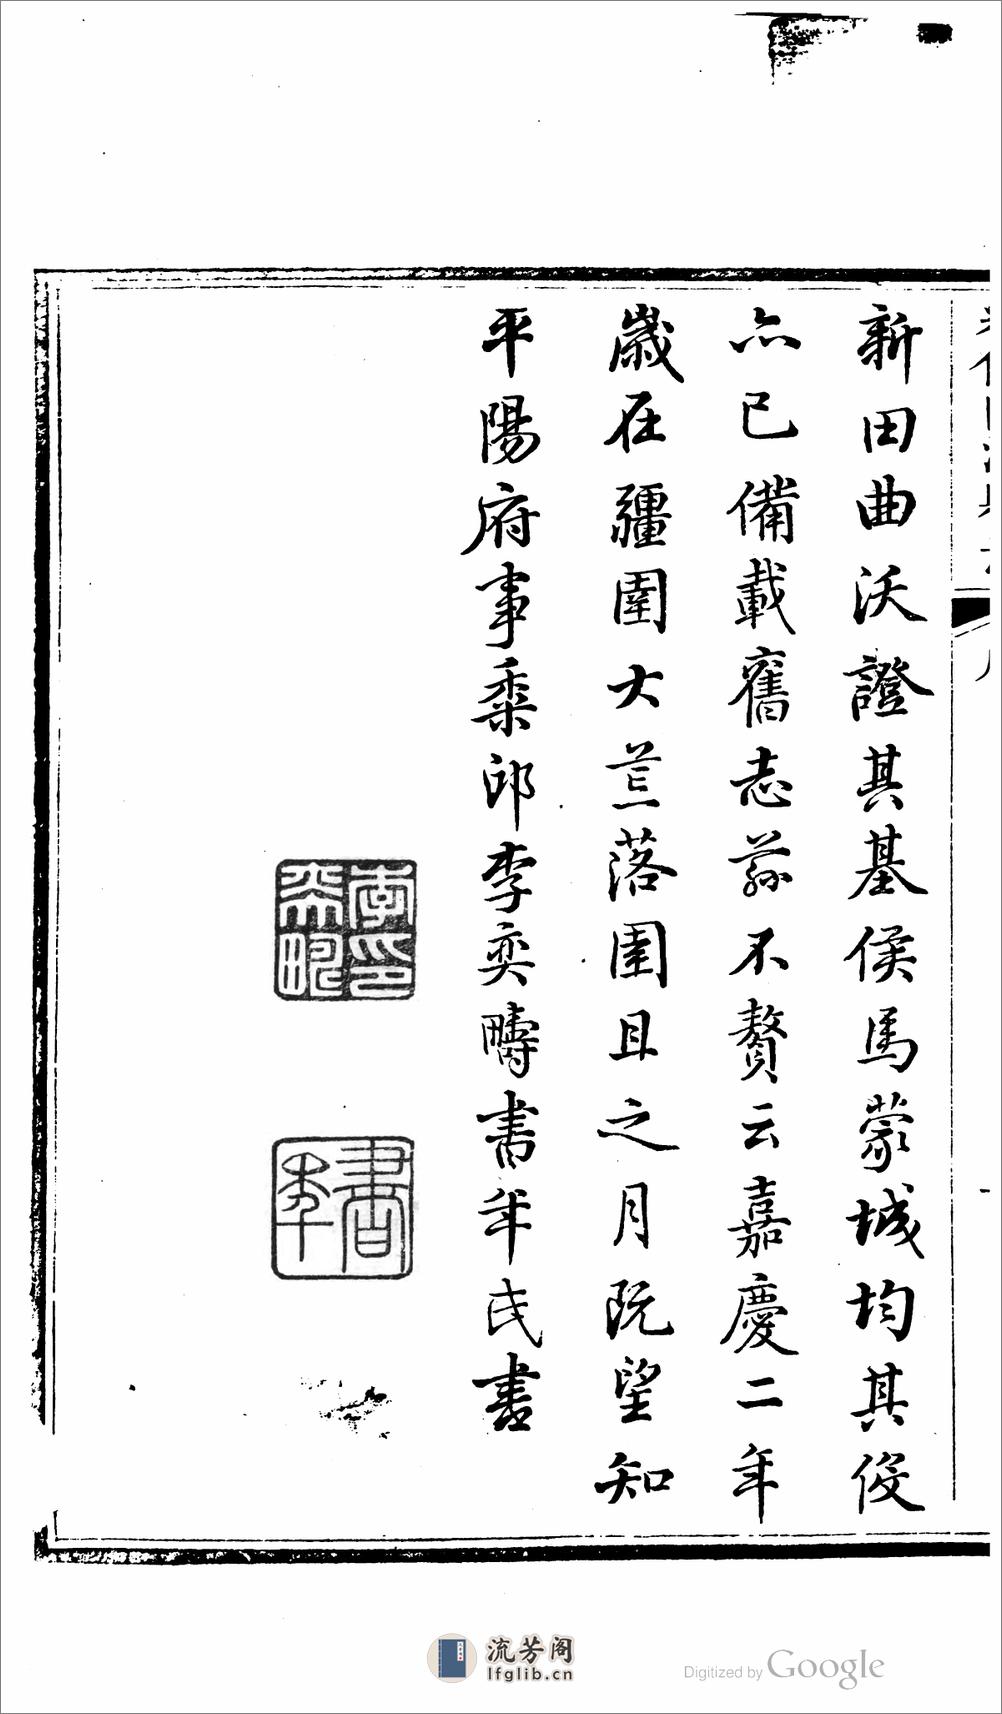 新田曲沃證其基侯馬蒙城均其後
亦已備載舊志茲不贅云嘉慶二年
歲在疆圉大荒落圉且之月既望知
平陽府事栗邱李奕疇書年氏書
李印奕疇
書年
流芳阁
lfglib.cn
Digitized by Google